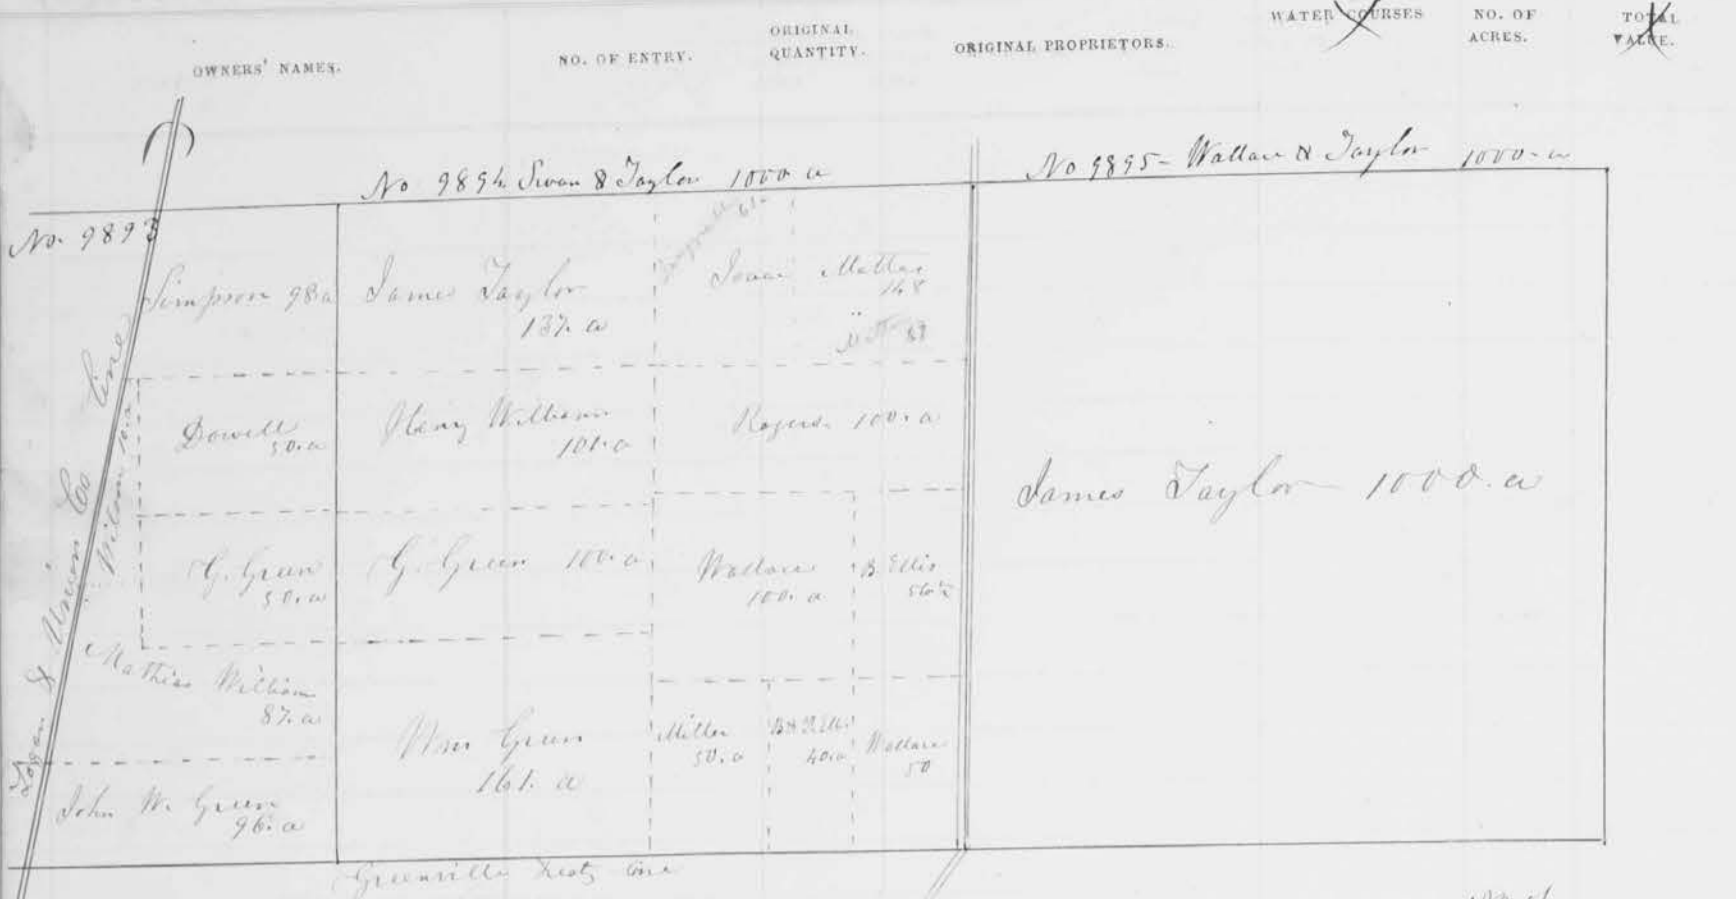 OWNERS' NAMES.
NO. OF ENTRY.
ORIGINAL
QUANTITY.
ORIGINAL PROPRIETORS.
WATER COURSES
NO. OF
ACRES.
TOTAL
VALUE.
No 9894 Swan & Taylor 1000 a
No 9895 - Wallace & Taylor 1000 - a
No. 9893
Logan & Union Co line
Simpson 98.a
Wilson 10.a
Dowell
50.a
G. Green
50.a
Mathias William
87.a
John W. Green
96.a
James Taylor
137. a
Henry William
101. a
G. Green 100. a
Wm Green
161. a
61
Isaac
148
Rogers 100. a
Wallace
100. a
B. Ellis
56½
Miller
50. a
40.a
Wallace
50
James Taylor 1000. a
Greenville Treaty line